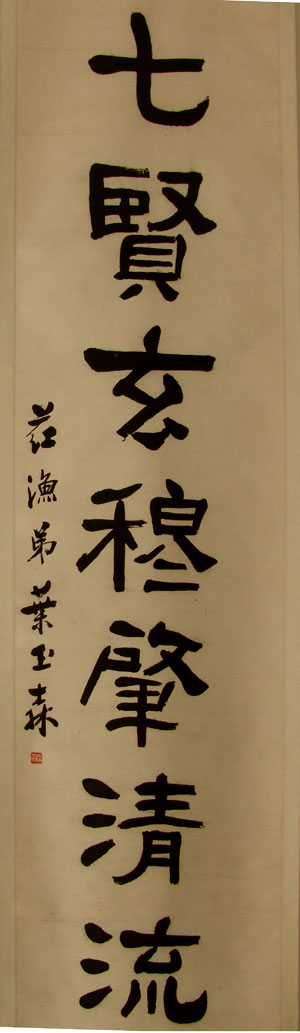 七賢玄穆肇清流
葒漁弟葉玉森